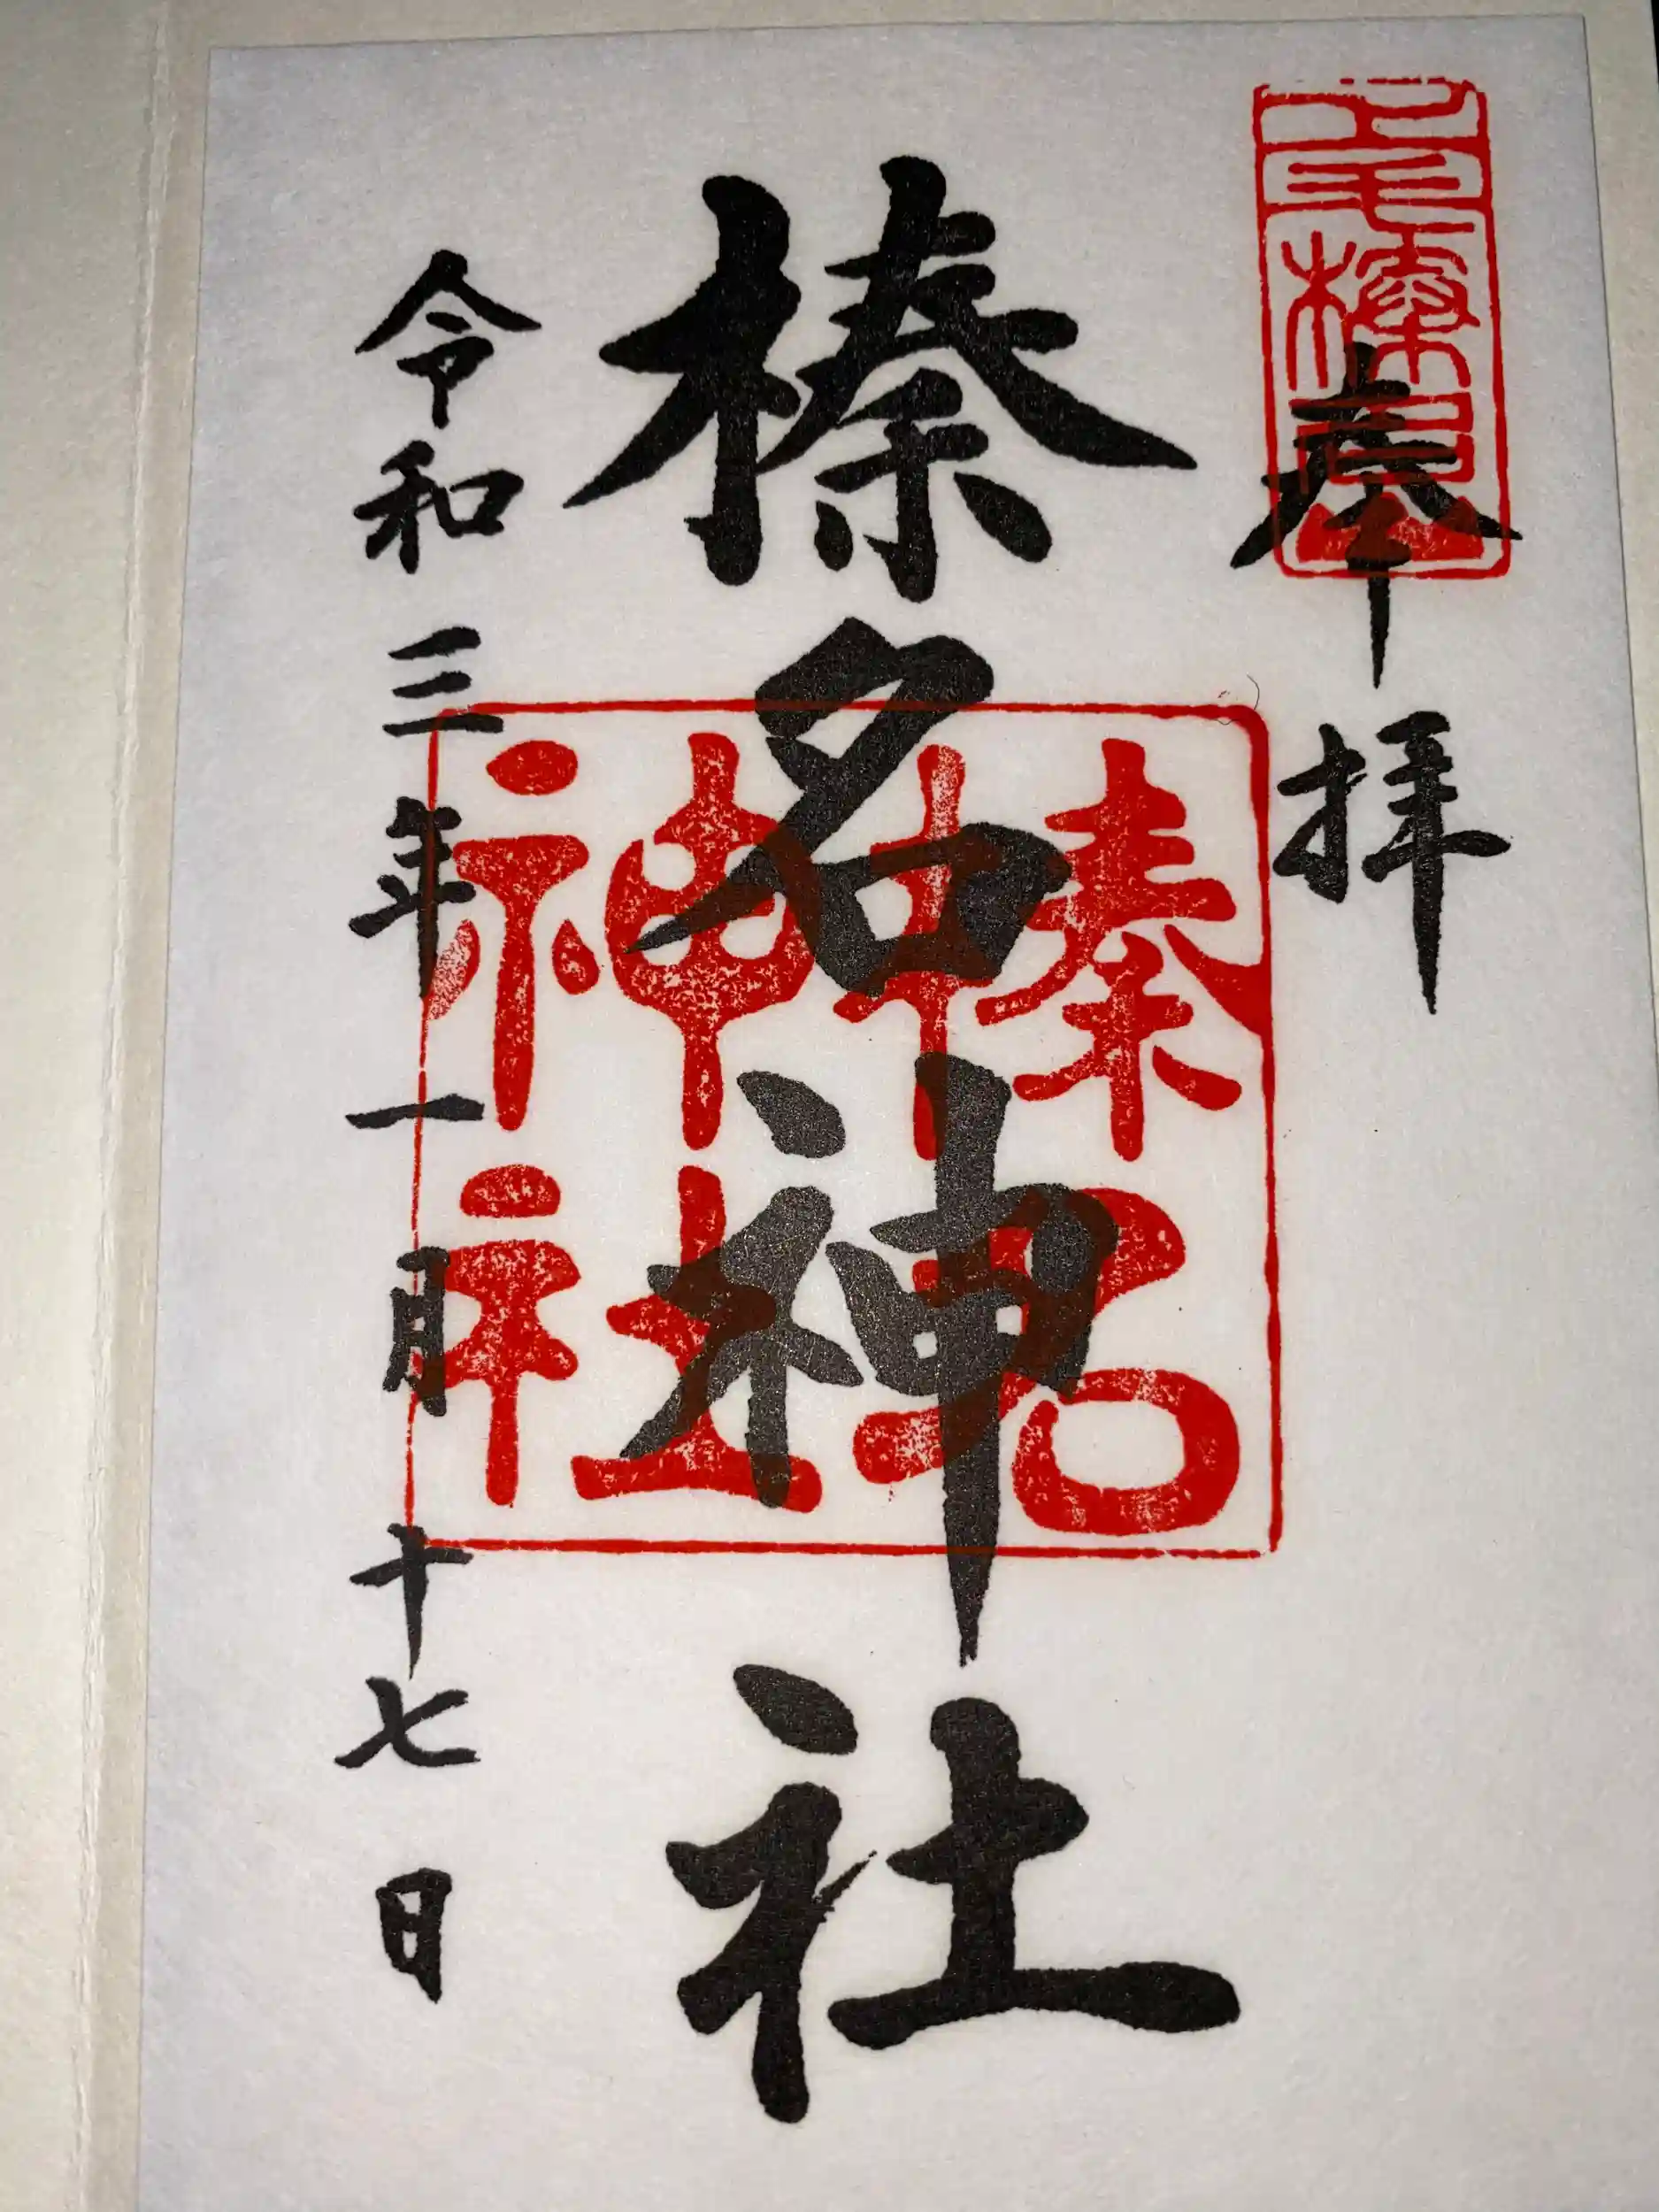 奉拝
上毛榛名山
榛名神社
榛名神社
令和三年一月十七日